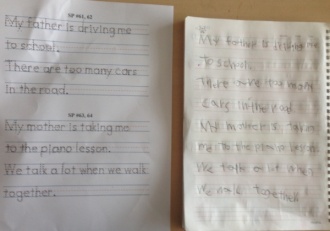 SP #61, 62
My father is driving me
to school.
There are too many cars
in the road.
SP #63, 64
My mother is taking me
to the piano lesson.
We talk a lot when we walk
together.
My father is driving me
To school.
There too many
cars in the road
My mother is taking
me to the piano lesson.
We talk a lot
we walk together